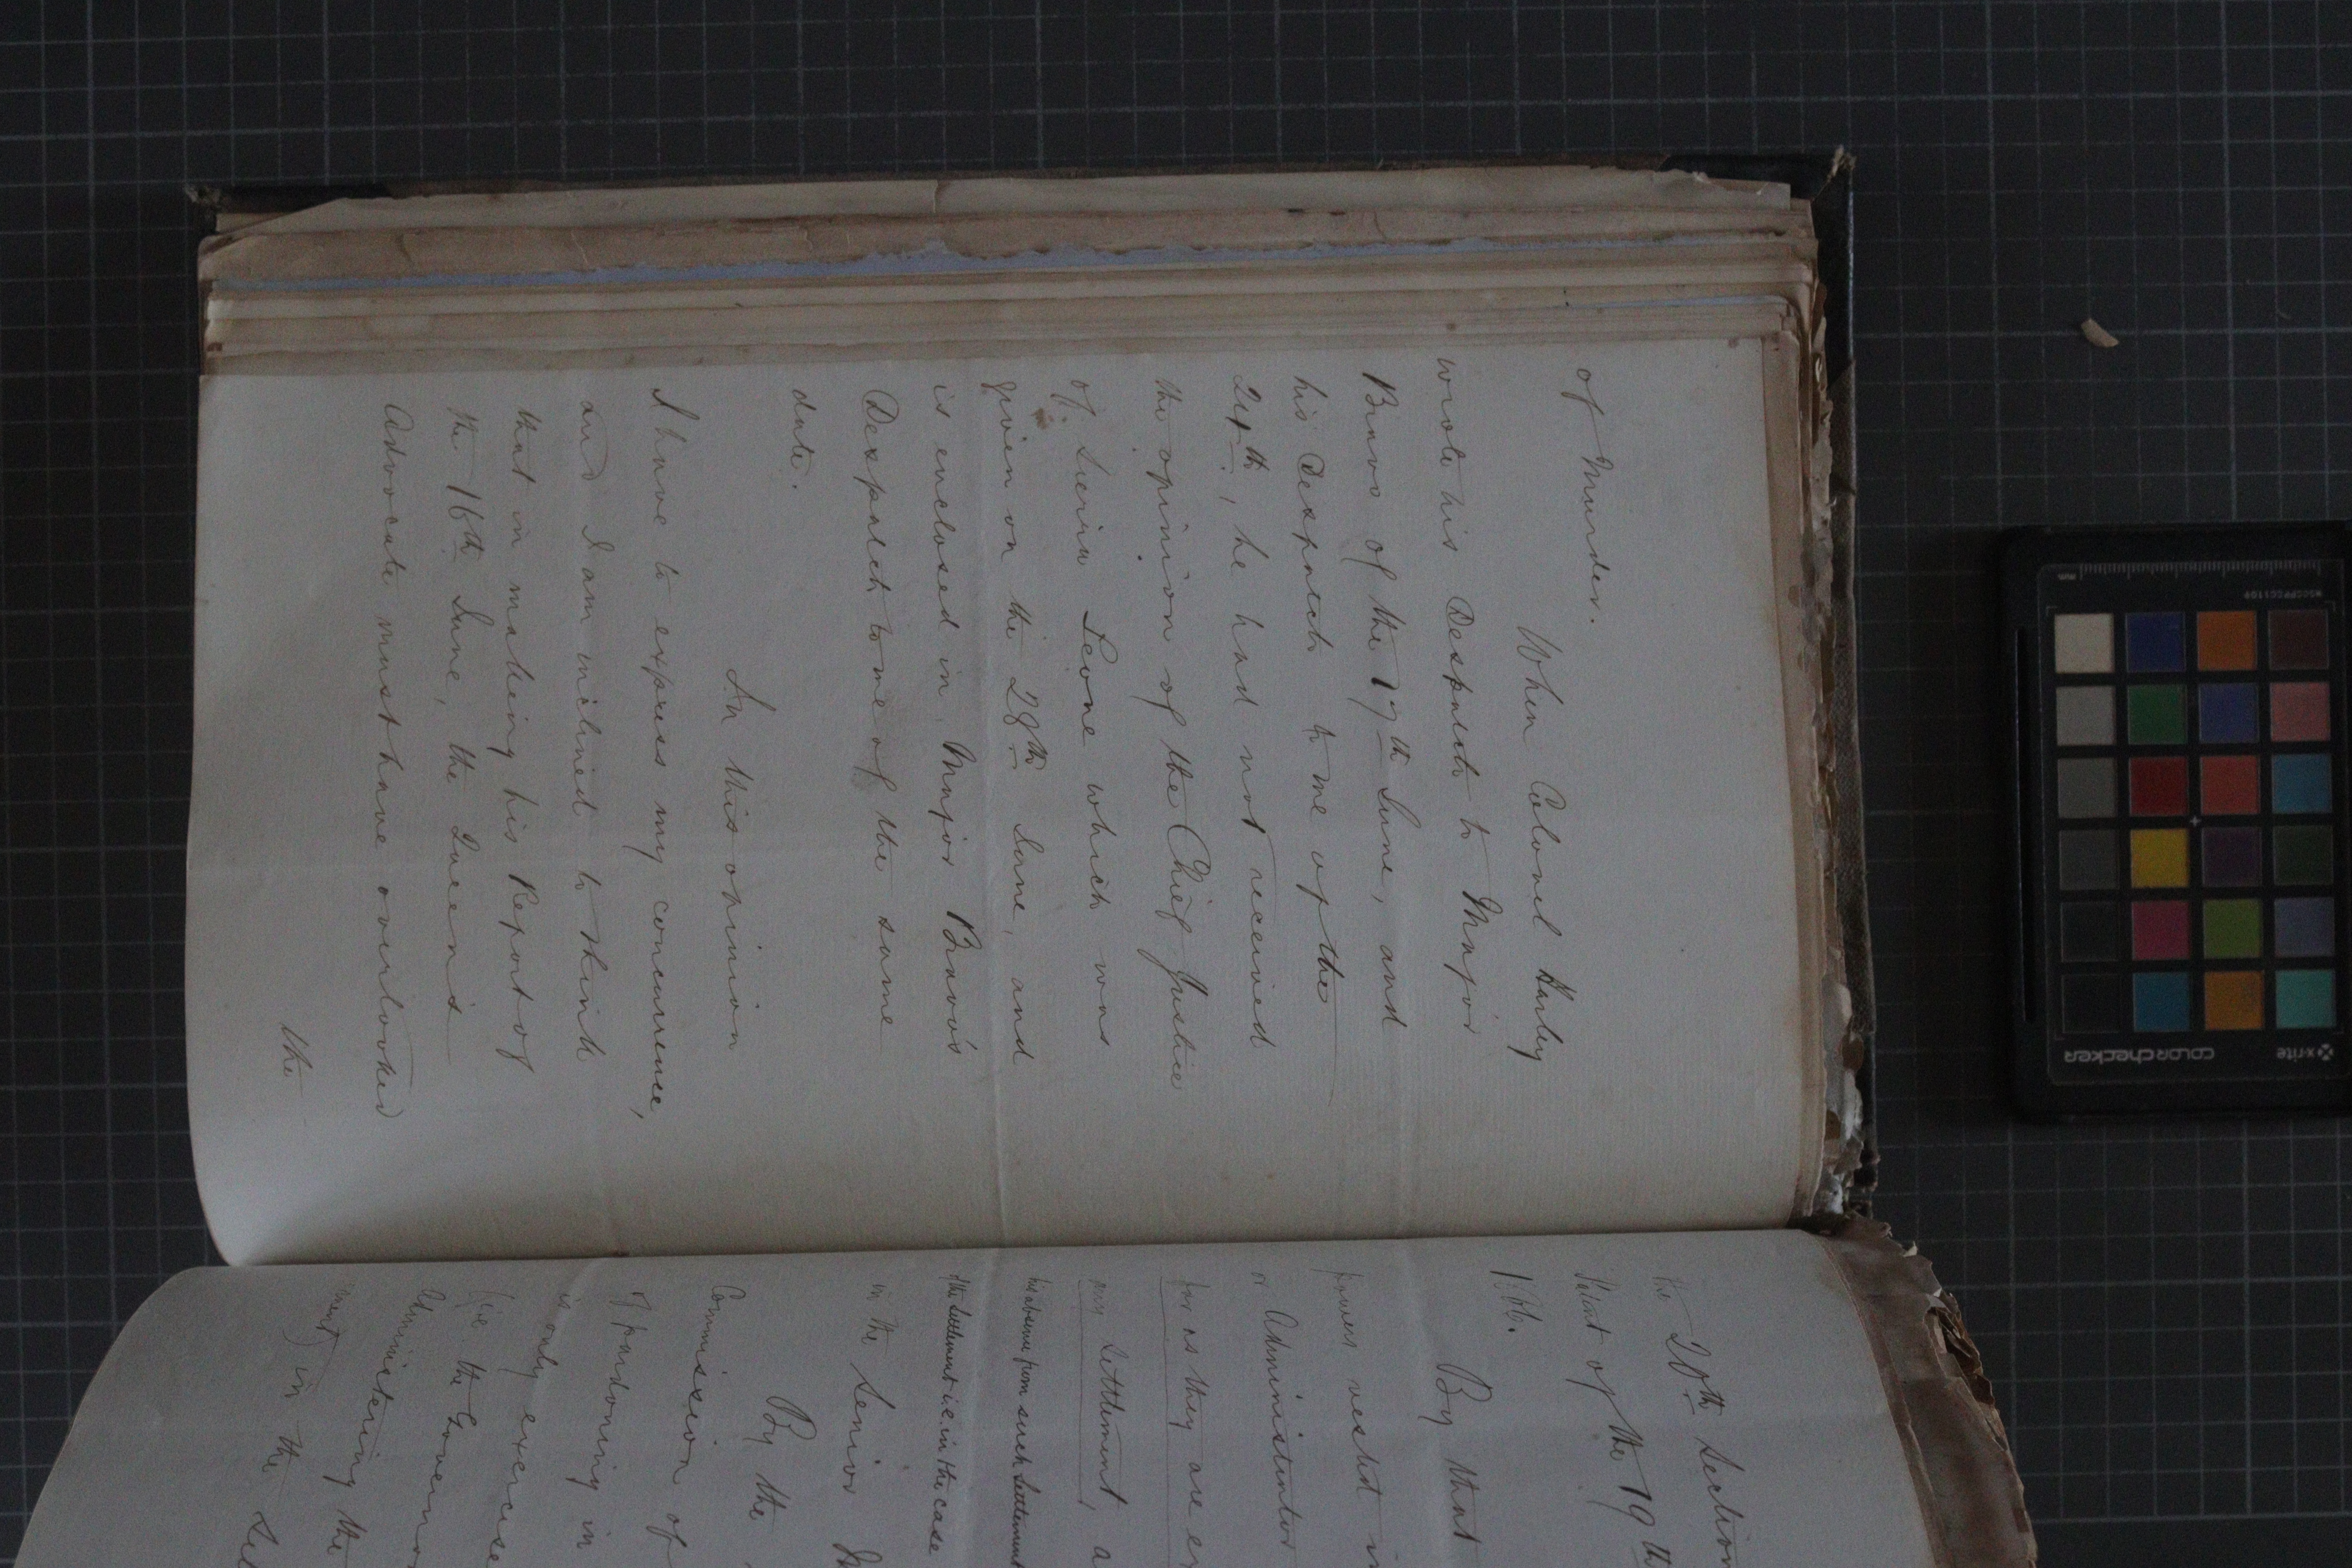 of Murder.
When Colonel Harley
wrote his Despatch to Major
Bravo of the 17th June, and
his Despatch to me of the
24th, he had not received
the opinion of the Chief Justice
of Sierra Leone which was
given on the 28th June, and
is enclosed in Major Bravo's
Despatch to me of the same
date.
In this opinion
I have to express my concurrence,
and I am inclined to think
that in making his Report of
the 16th June, the Queen's
Advocate must have overlooked
the
the 20th Section
Patent of the 19th
1866.
By that
powers vested in
or Administrator
far as they are
any Settlement, a
his absence from such Settlement
the Settlement i.e. in the case
in the Senior
By the
Commission of
of pardoning in
is only exercise
(ie the Governor
Administering the
ment) in the
x-rite
colorchecker
MSCCPPCC1109
mm